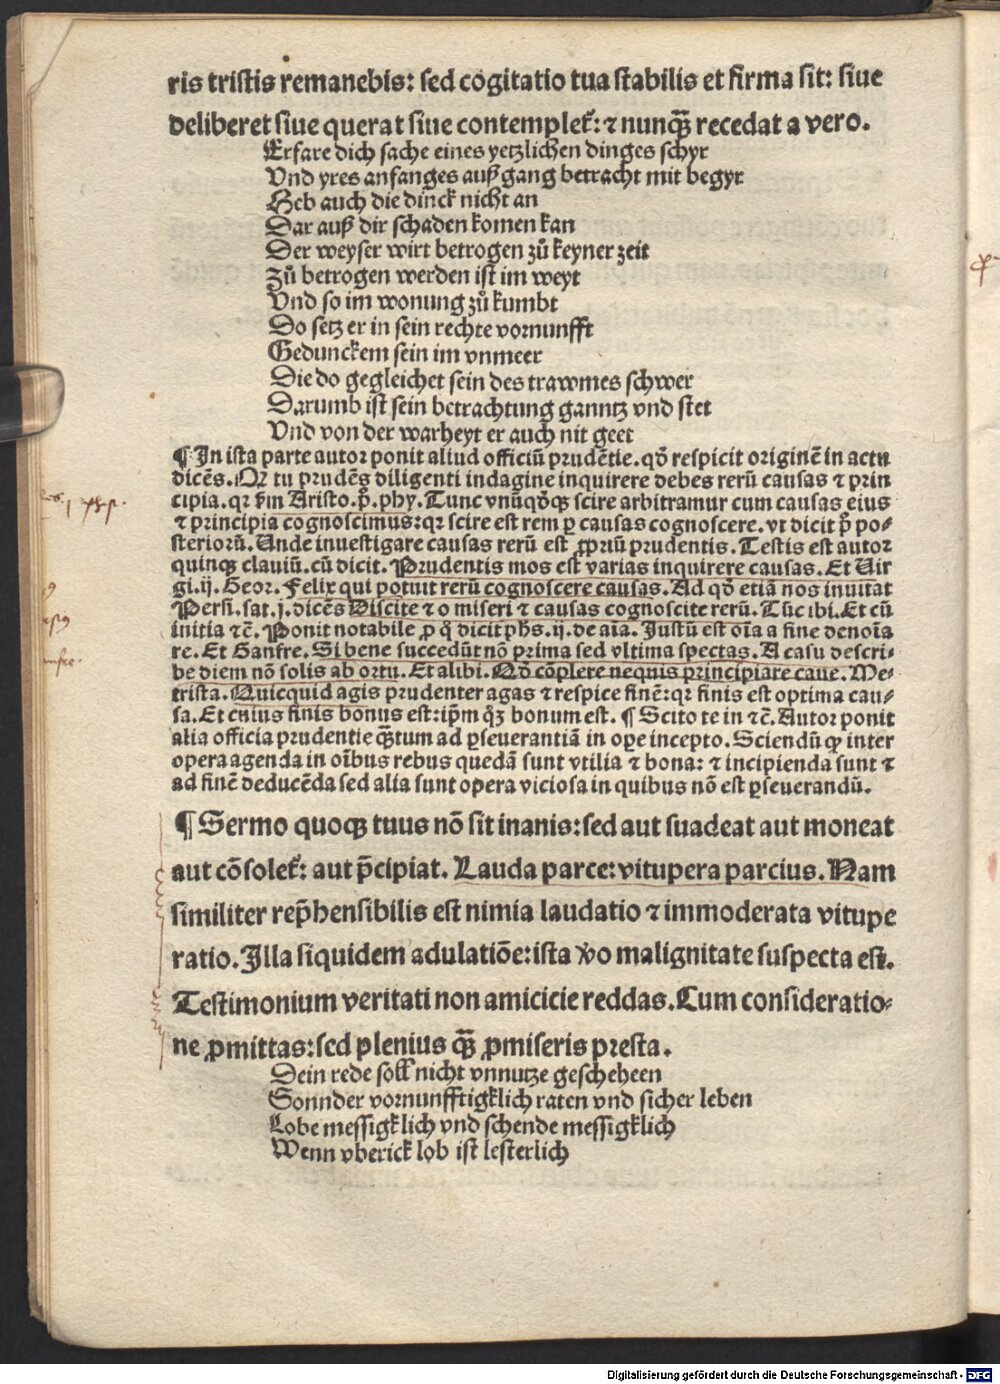 ris tristis remanebis: sed cogitatio tua stabilis et firma sit: siue
deliberet siue querat siue contemplet᷑: ⁊ nunqȝ̄ recedat a vero.
Erfare dich sache eines yetzlichen dinges schyr
Vnd yres anfanges außgang betracht mit begyr
Heb auch die dinck nicht an
Dar auß dir schaden komen kan
Der weyser wirt betrogen zů keyner zeit
Zů betrogen werden ist im weyt
Vnd so im wonung zů kumbt
Do setz er in sein rechte vornunfft
Gedunckem sein im vnmeer
Die do gegleichet sein des trawmes schwer
Darumb ist sein betrachtung ganntz vnd stet
Vnd von der warheyt er auch nit geet
¶ In ista parte autor ponit aliud officiū prudētie. qđ respicit originē in actu
dicēs. Qꝛ tu prudēs diligenti indagine inquirere debes rerū causas ⁊ prin
cipia. qꝛ ẜm Aristo. p̄. phy. Tunc vnūqđqȝ scire arbitramur cum causas eius
⁊ principia cognoscimus: qꝛ scire est rem ꝑ causas cognoscere. vt dicit p̄ po⸗
steriorū. Unde inuestigare causas rerū est ꝓpriū prudentis. Testis est autor
quinqȝ clauiū. cū dicit. Prudentis mos est varias inquirere causas. Et Uir
gi. ij. Geor. Felix qui potuit rerū cognoscere causas. Ad qđ etiā nos inuitat
Persi. sat. j. dicēs Discite ⁊ o miseri ⁊ causas cognoscite rerū. Tūc ibi. Et cū
initia ⁊c̄. Ponit notabile ꝓ q̊ dicit phs. ij. de aīa. Justū est oīa a fine denoīa
re. Et Ganfre. Si bene succedūt nō prima sed vltima spectas. A casu descri⸗
be diem nō solis ab ortu. Et alibi. Qđ cōplere nequis principiare caue. Me⸗
trista. Quicquid agis prudenter agas ⁊ respice finē: qꝛ finis est optima cau⸗
sa. Et cuius finis bonus est: ip̄m qȝ bonum est. ¶ Scito te in ⁊c̄. Autor ponit
alia officia prudentie qȝ̄tum ad ꝑseuerantiā in oꝑe incepto. Sciendū ꝙ inter
opera agenda in oībus rebus quedā sunt vtilia ⁊ bona: ⁊ incipienda sunt ⁊
ad finē deducēda sed alia sunt opera viciosa in quibus nō est ꝑseuerandū.
¶ Sermo quoqȝ tuus nō sit inanis: sed aut suadeat aut moneat
aut cōsolet᷑: aut p̄cipiat. Lauda parce: vitupera parcius. Nam
similiter rep̄hensibilis est nimia laudatio ⁊ immoderata vitupe
ratio. Illa siquidem adulatiōe: ista v̊o malignitate suspecta est.
Testimonium veritati non amicicie reddas. Cum consideratio⸗
ne ꝓmittas: sed plenius qȝ̄ ꝓmiseris presta.
Dein rede soll nicht vnnutze gescheheen
Sonnder vornunfftigklich raten vnd sicher leben
Lobe messigklich vnd schende messigklich
Wenn vberick lob ist lesterlich
Digitalisierung gefördert durch die Deutsche Forschungsgemeinschaft - DFG